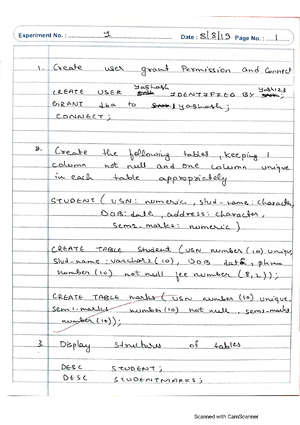 Experiment No. : 1 Date : 5/8/19 Page No. : 1
1. Create user grant Permission and Connect
CREATE USER Yashash IDENTIFIED BY Yash123;
GRANT dba to yashash;
CONNECT;
2. Create the following tables, keeping 1
column not null and one column unique
in each table appropriately
STUDENT (USN: numeric, stud-name: character,
DOB: date, address: character,
sem1-marks: numeric)
CREATE TABLE Student (USN number(10) unique,
Stud-name: varchar2(10), DOB date, phnum
number(10) not null fee number(8,2));
CREATE TABLE marks (USN number(10) unique,
sem1-marks number(10) not null, sem2-marks
number(10));
3. Display structures of tables
DESC STUDENT;
DESC STUDENTMARKS;
Scanned with CamScanner